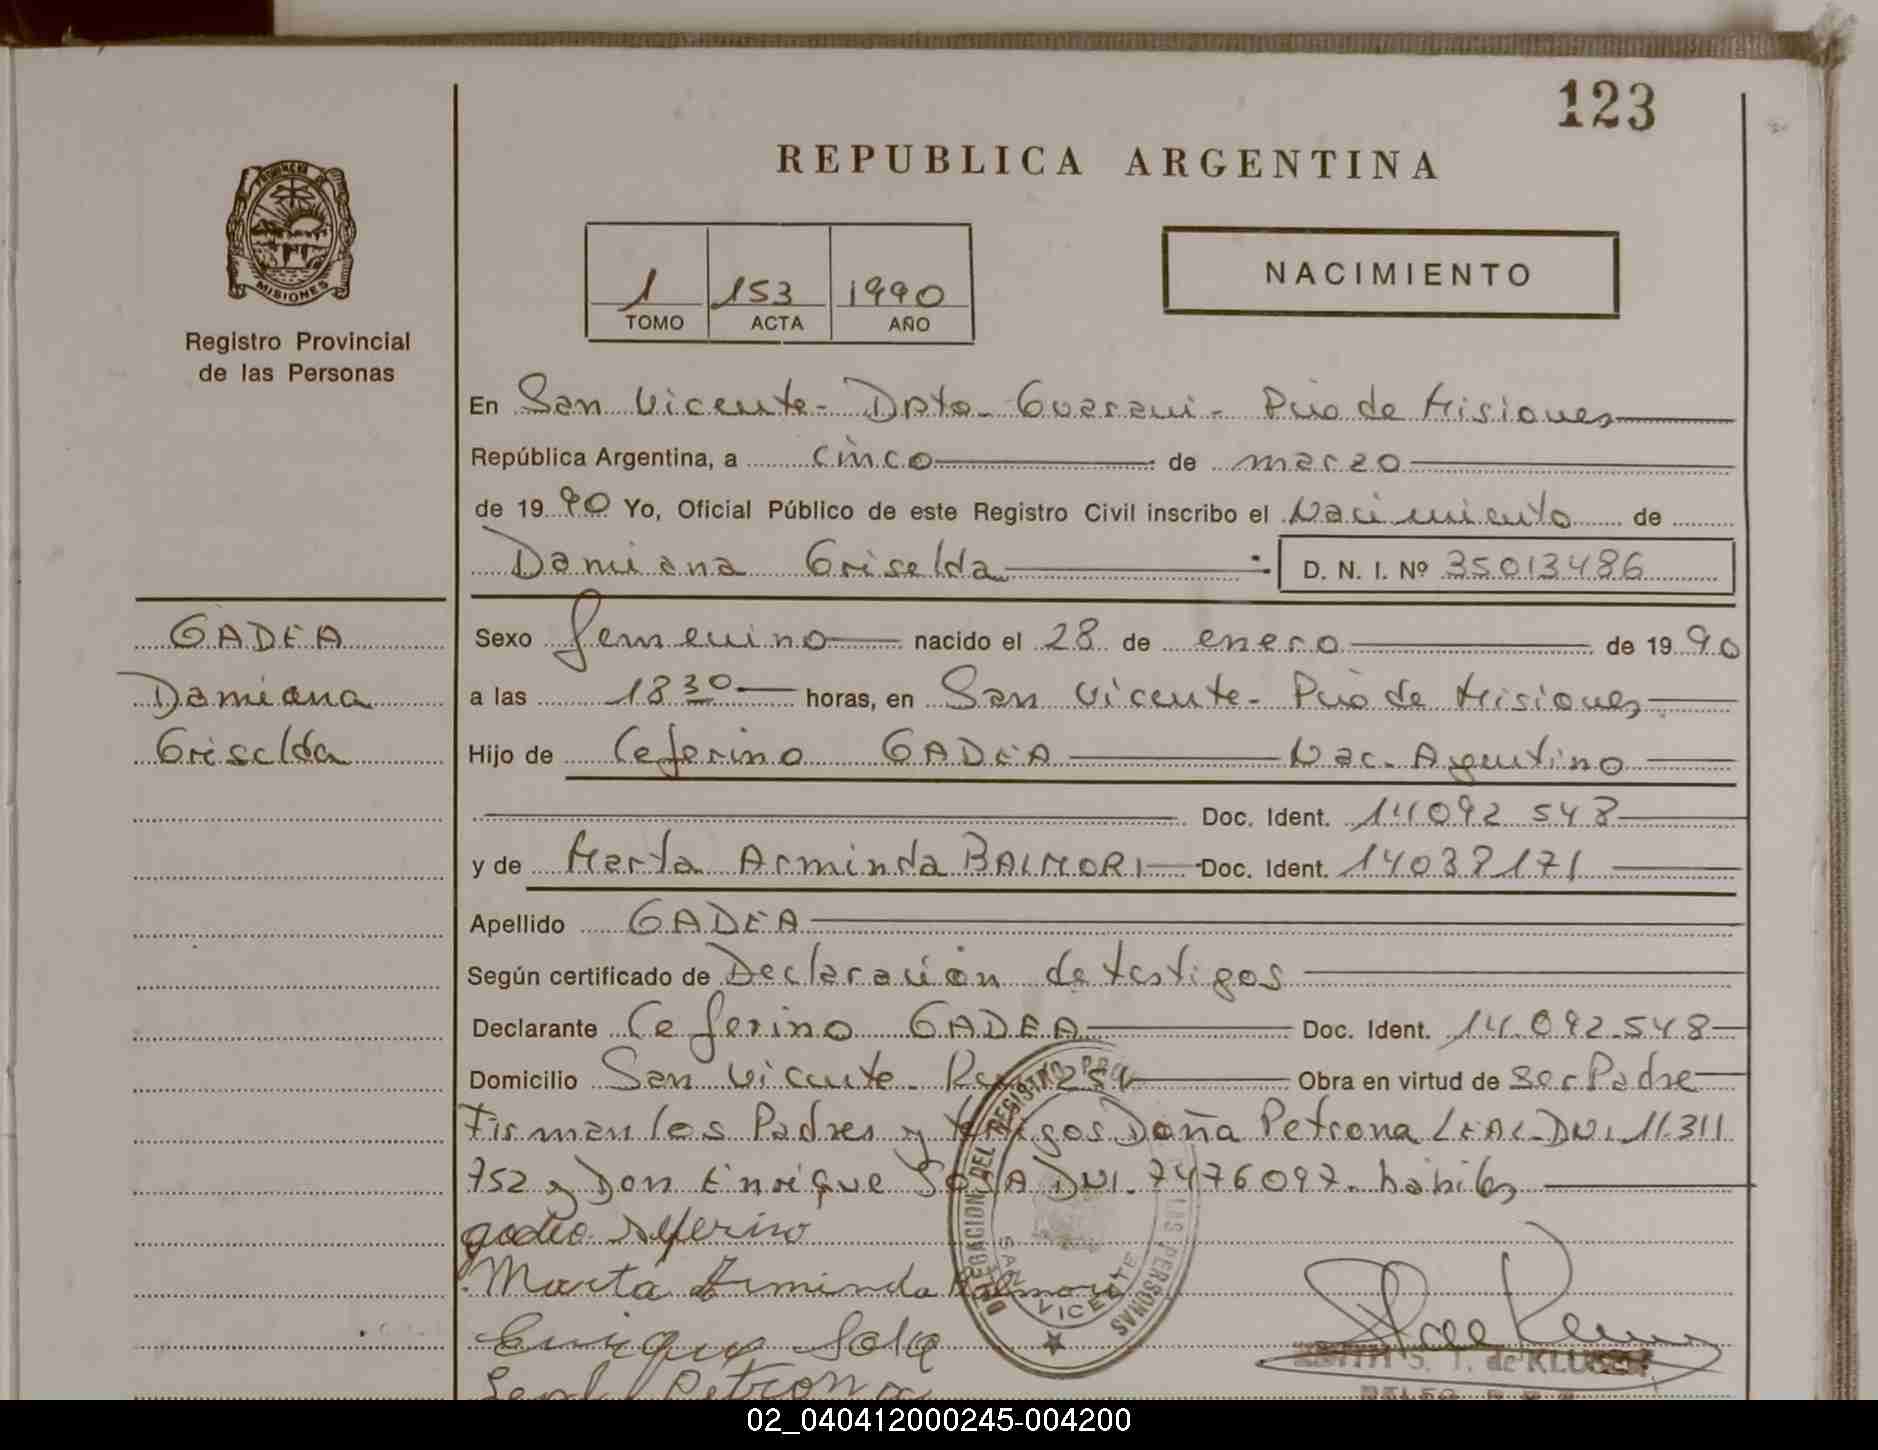 123
REPUBLICA ARGENTINA
PROVINCIA DE
MISIONES
Registro Provincial
de las Personas
1 153 1990
TOMO ACTA AÑO
NACIMIENTO
En San Vicente - Dpto - Guarani - Pcio de Misiones
República Argentina, a cinco de marzo
de 1990 Yo, Oficial Público de este Registro Civil inscribo el Nacimiento de
Damiana Griselda D. N. I. Nº 35013486
GADEA
Damiana
Griselda
Sexo femenino nacido el 28 de enero de 1990
a las 18 30 horas, en San Vicente - Pcio de Misiones
Hijo de Ceferino GADEA Nac. Argentino
Doc. Ident. 14092548
y de Marta Arminda BALMORI Doc. Ident. 14038171
Apellido GADEA
Según certificado de Declaración de testigos
Declarante Ceferino GADEA Doc. Ident. 14.092.548
Domicilio San Vicente - Obra en virtud de ser Padre
Firman los Padres y testigos Doña Petrona LEAL DNI 11.311
752 y Don Enrique SOSA DNI. 7476097. hábiles
gadea seferino
Marta Arminda Balmori
Enrique Sosa
Leal Petrona
DELEGACION DEL REGISTRO LAS PERSONAS
SAN VICENTE
S. T. de
02_040412000245-004200